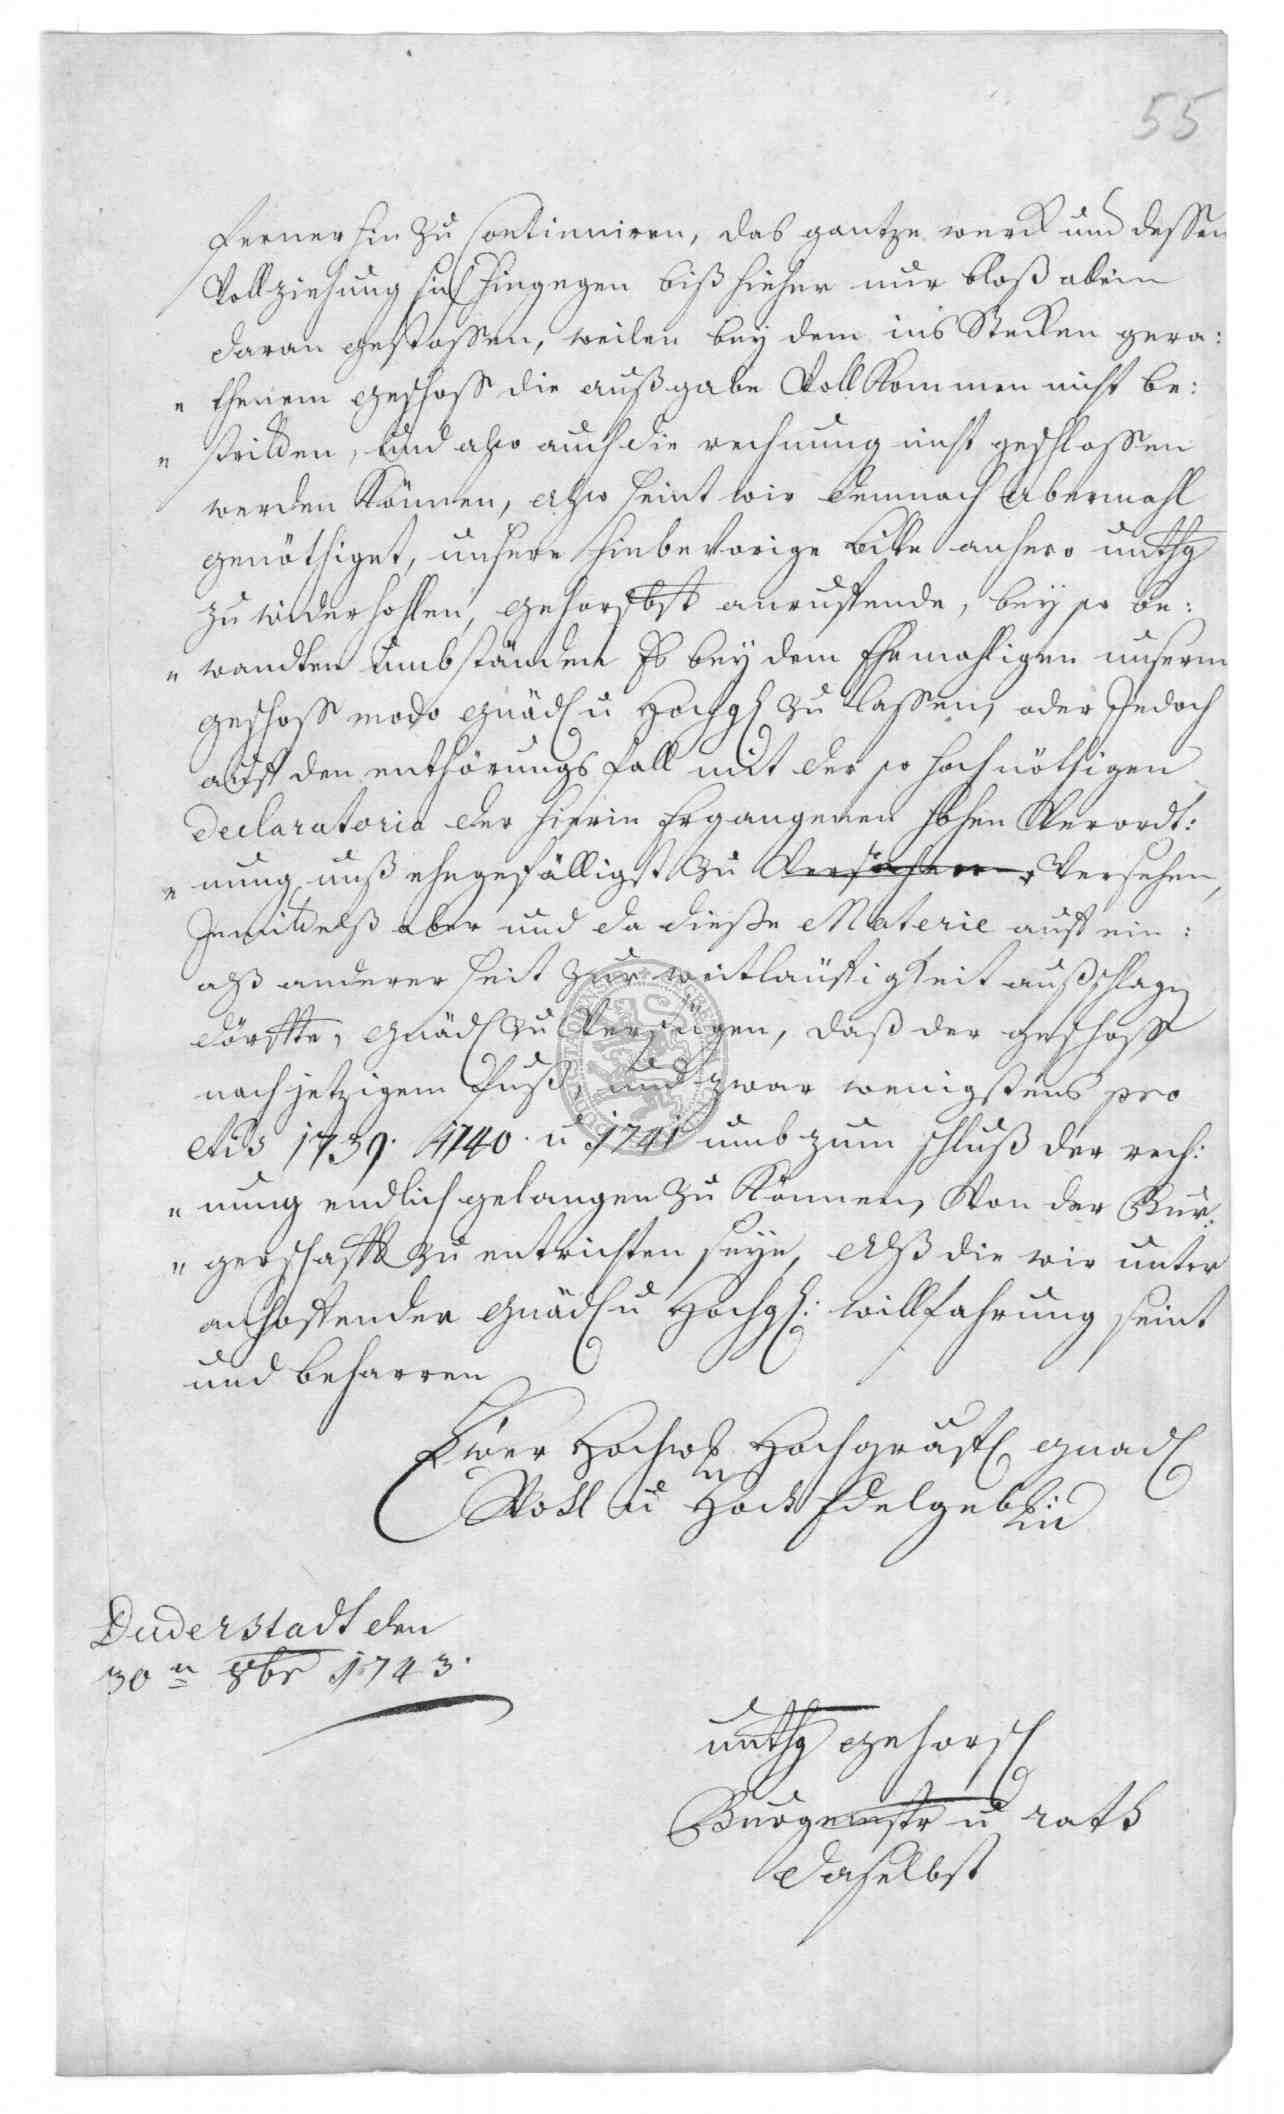 55
fernerhin zu continuiren, das gantze werck und dessen
Vollziehung sich hingegen biß hieher nur bloß allein
daran gestossen, weilen bey dem ins Stecken gera:
" thenem geschoss die außgabe Vollkommen nicht be:
" stritten, und also auch die rechnung nicht geschlossen
werden können, also seint wir demnach abermahl
genöthiget, unsere hiebevorige bitte anhero unthg
zu widerhohlen, gehorsbst anruffende, bey so be:
" wandten umbständen Es bey dem Ehemahligen unserm
geschoss modo gnäd u Hochgl zu lassen, oder Jedoch
auff den enthörungs fall mit der so hoch nöthigen
Declaratoria der hierin Ergangenen hohen Verordt:
" nung unß ehegefälligst zu Versehen,
Jmittelß aber und da dieße Materie auff ein:
alß anderer seit zur weitläuffigkeit außschlagen
dörffte, gnäd zu Verfügen, daß der geschoss
nach jetzigem Fuß, und zwar wenigstens pro
Ais 1739. 1740. u 1741 umb zum schluß der rech:
" nung endlich gelangen zu können, Von der Bur:
" gerschafft zu entrichten seye, Alß die wir unter
anhoffender gnäd u Hochgl: willfahrung seint
und beharren
Ewer Hochw Hochgräfl gnad
Wohl u Hoch Edelgeb
Duderstadt den
30n 8br 1743.
unthg gehorsl
Burgemstr u rath
daselbst